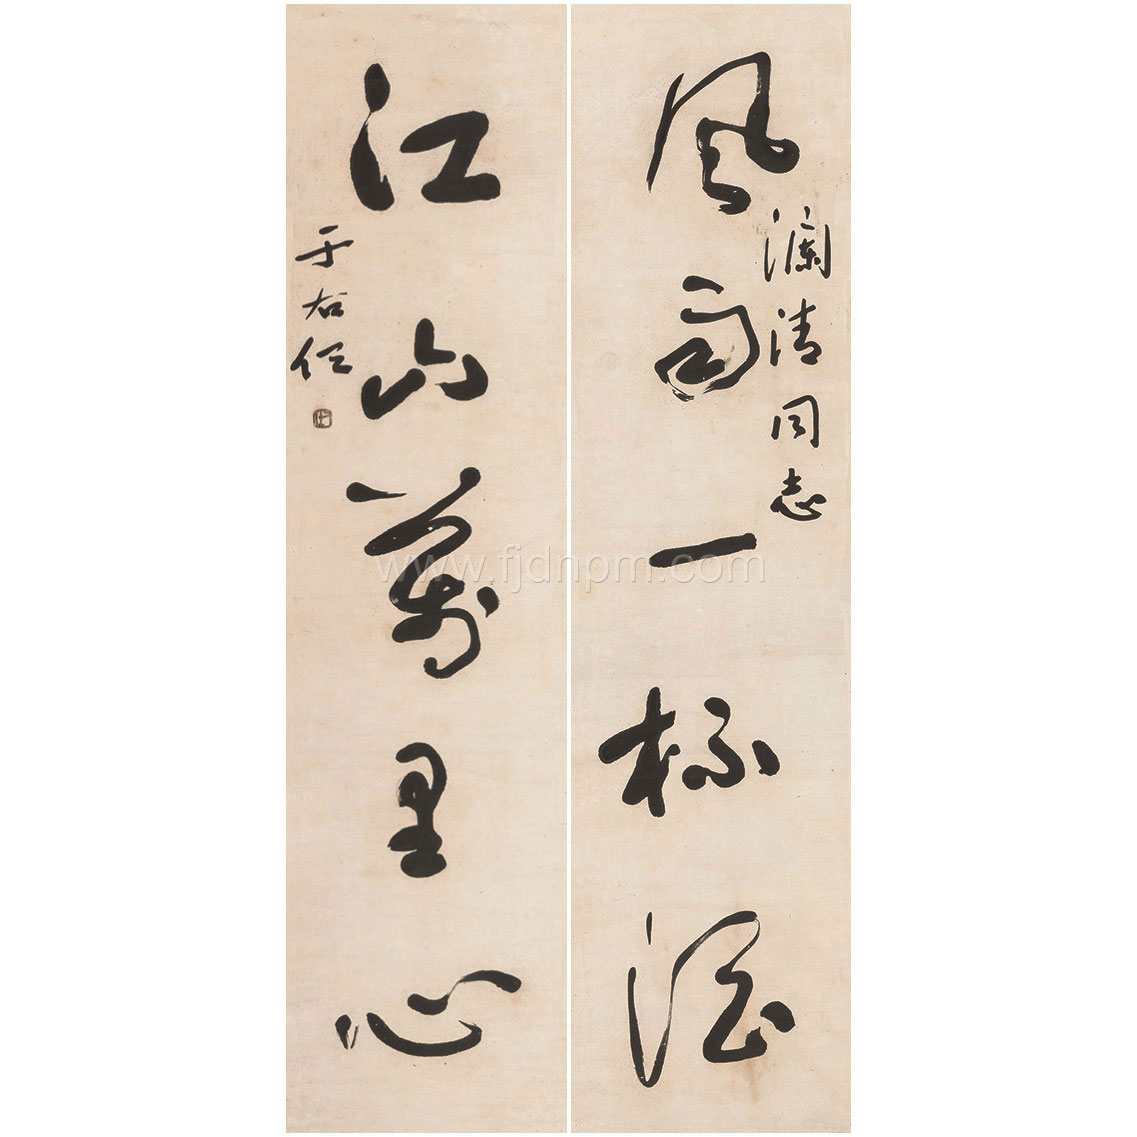 风雨一杯酒
澜清同志
江山萬里心
于右任
www.fjdnpm.com